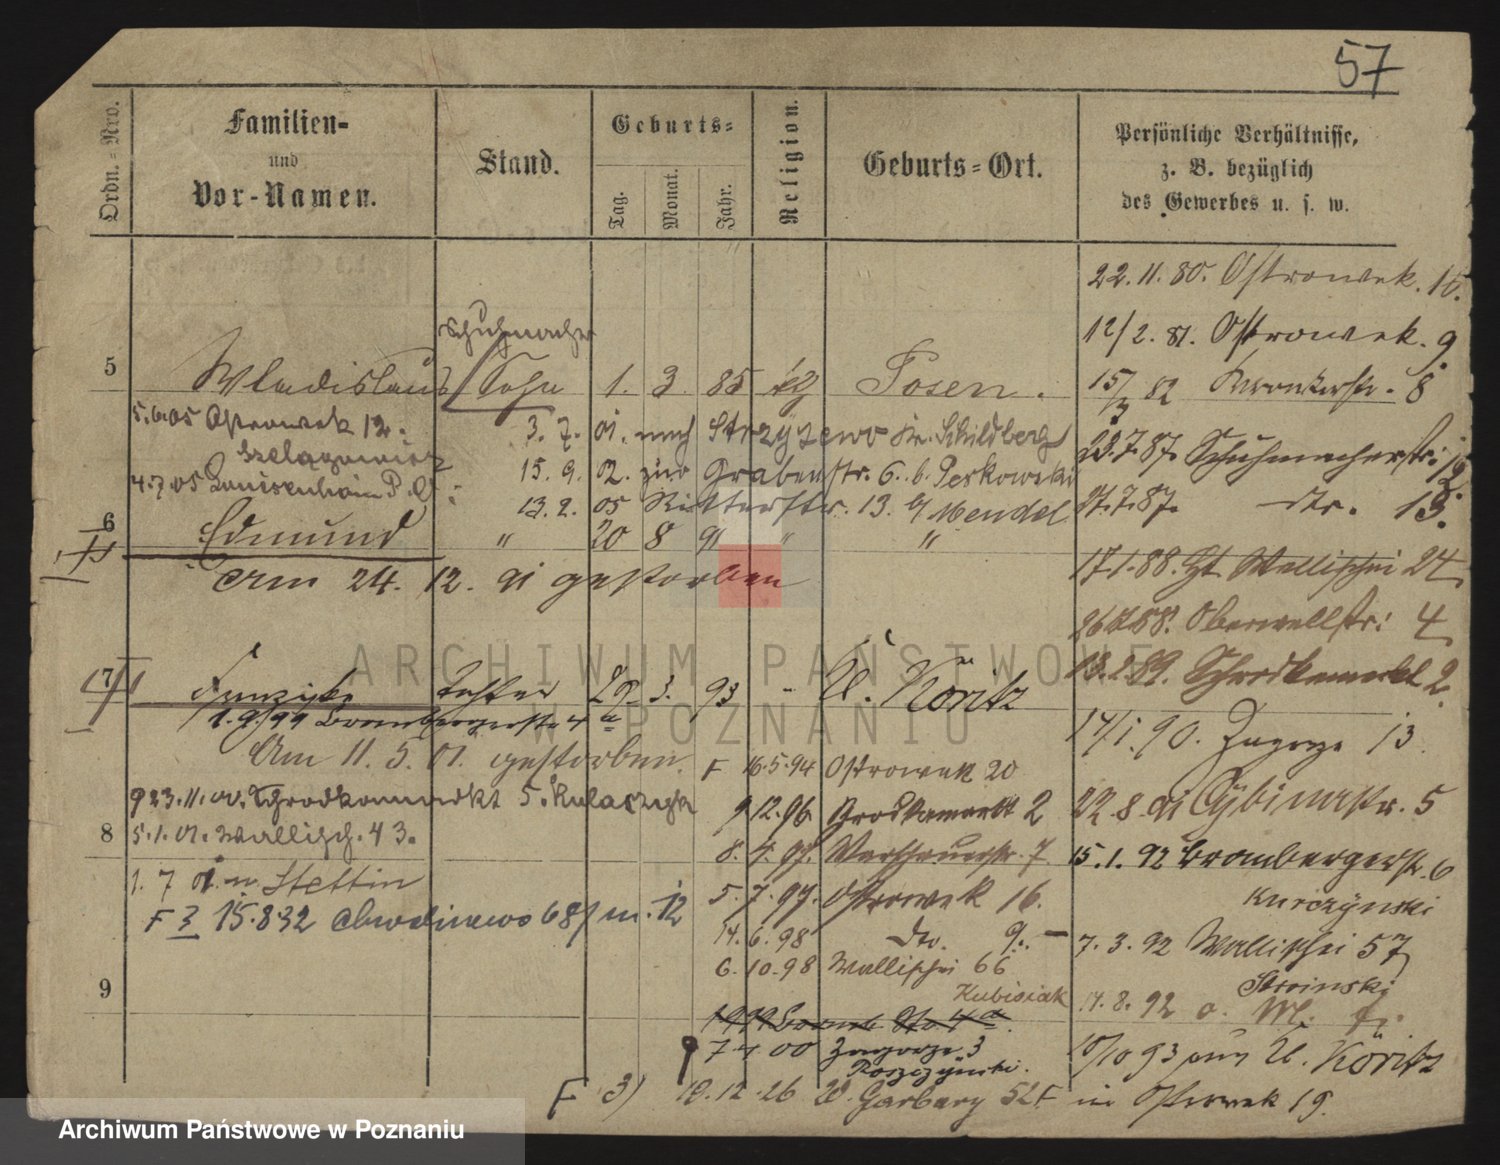 57
Ordn.=Nro.
Familien-
und
Vor-Namen.
Stand.
Geburts=
Tag.
Monat.
Jahr.
Religion.
Geburts=Ort.
Persönliche Verhältnisse,
z. B. bezüglich
des Gewerbes u. s. w.
22.11.80. Ostrowek. 10.
12/2. 81. Ostrowek. 9
Schuhmacher
5 Wladislaus Sohn 1. 3 85 Posen.
15/ 82 8
5.6.05 Ostrowek 12.
3. 7. 01. nach Strzyzewo Kr. Schildberg
23.7.87. Schuhmacherstr. 12.
15. 9. 02. zur Grabenstr. 6. b. Perkowski
4.7.05 Louisenhain
13. 2. 05 Ritterstr. 13. b/ Mendel
27.7.87. dto. 13.
6 Edmund " 20 8 91 " "
Am 24. 12. 91 gestorben
17.1.88. Wallischei 24
Oberwallstr: 4
7 Franziska Tochter 29 3. 93 - Kl. Köritz
Schrodkamarkt 2
1.9/99 Brombergerstr 4 a
14/1. 90. Zagorze 13.
Am 11. 5. 01. gestorben.
F 16.5.94 Ostrowek 20
23.11.00. Schrodkamarkt 5.
9 12.96. Schrodkamarkt 2
22.8.91 Cybinastr. 5
8 5.1.01. Wallisch. 43.
8. 4. 97. Warschauerstr. 7
15.1. 92 Brombergerstr. 6
Kurczynski
1. 7 01. n. Stettin
5. 7. 97. Ostrowek 16.
F 3 15.8.32 m. 12
14. 6. 98 dto. 9. -
7. 3. 92 Wallischei 57
Stroinski
9 6. 10. 98 Wallischei 66
Kubisiak
14. 8. 92
7 4 00 Zagorze 3
10/10 93 aus Kl. Köritz
F 3) 10. 12. 26 W. Garbary 52 F
in Ostrowek 19.
ARCHIWUM PAŃSTWOWE
W POZNANIU
Archiwum Państwowe w Poznaniu